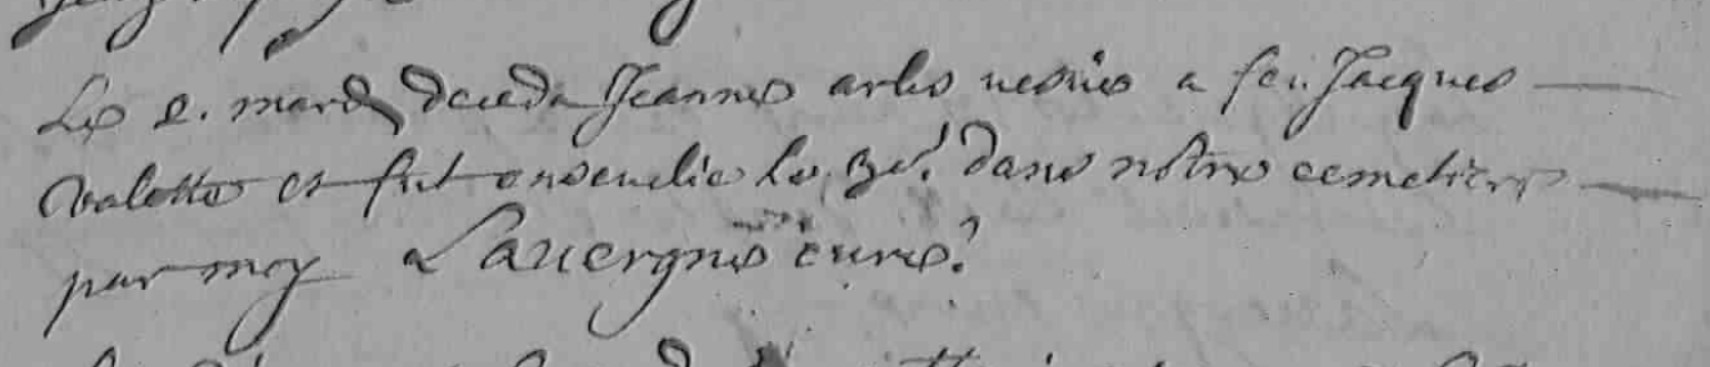 Le 2. mars deceda Jeanne arles vesuie a feu Jacques
valette et fut ensevelie le 3e.' dans notre cemetiere
par moy Lauergne curé.